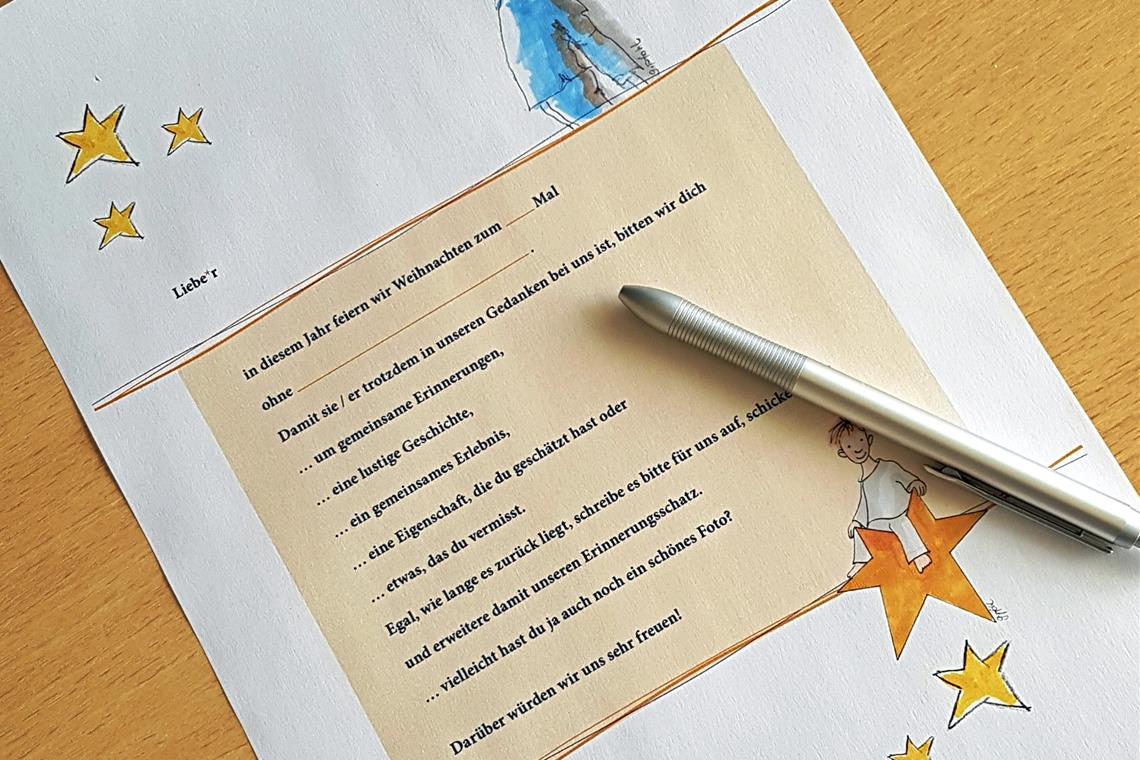 Liebe*r
in diesem Jahr feiern wir Weihnachten zum ___ Mal
ohne ______________________________.
Damit sie / er trotzdem in unseren Gedanken bei uns ist, bitten wir dich
... um gemeinsame Erinnerungen,
... eine lustige Geschichte,
... ein gemeinsames Erlebnis,
... eine Eigenschaft, die du geschätzt hast oder
... etwas, das du vermisst.
Egal, wie lange es zurück liegt, schreibe es bitte für uns auf, schicke
und erweitere damit unseren Erinnerungsschatz.
... vielleicht hast du ja auch noch ein schönes Foto?
Darüber würden wir uns sehr freuen!